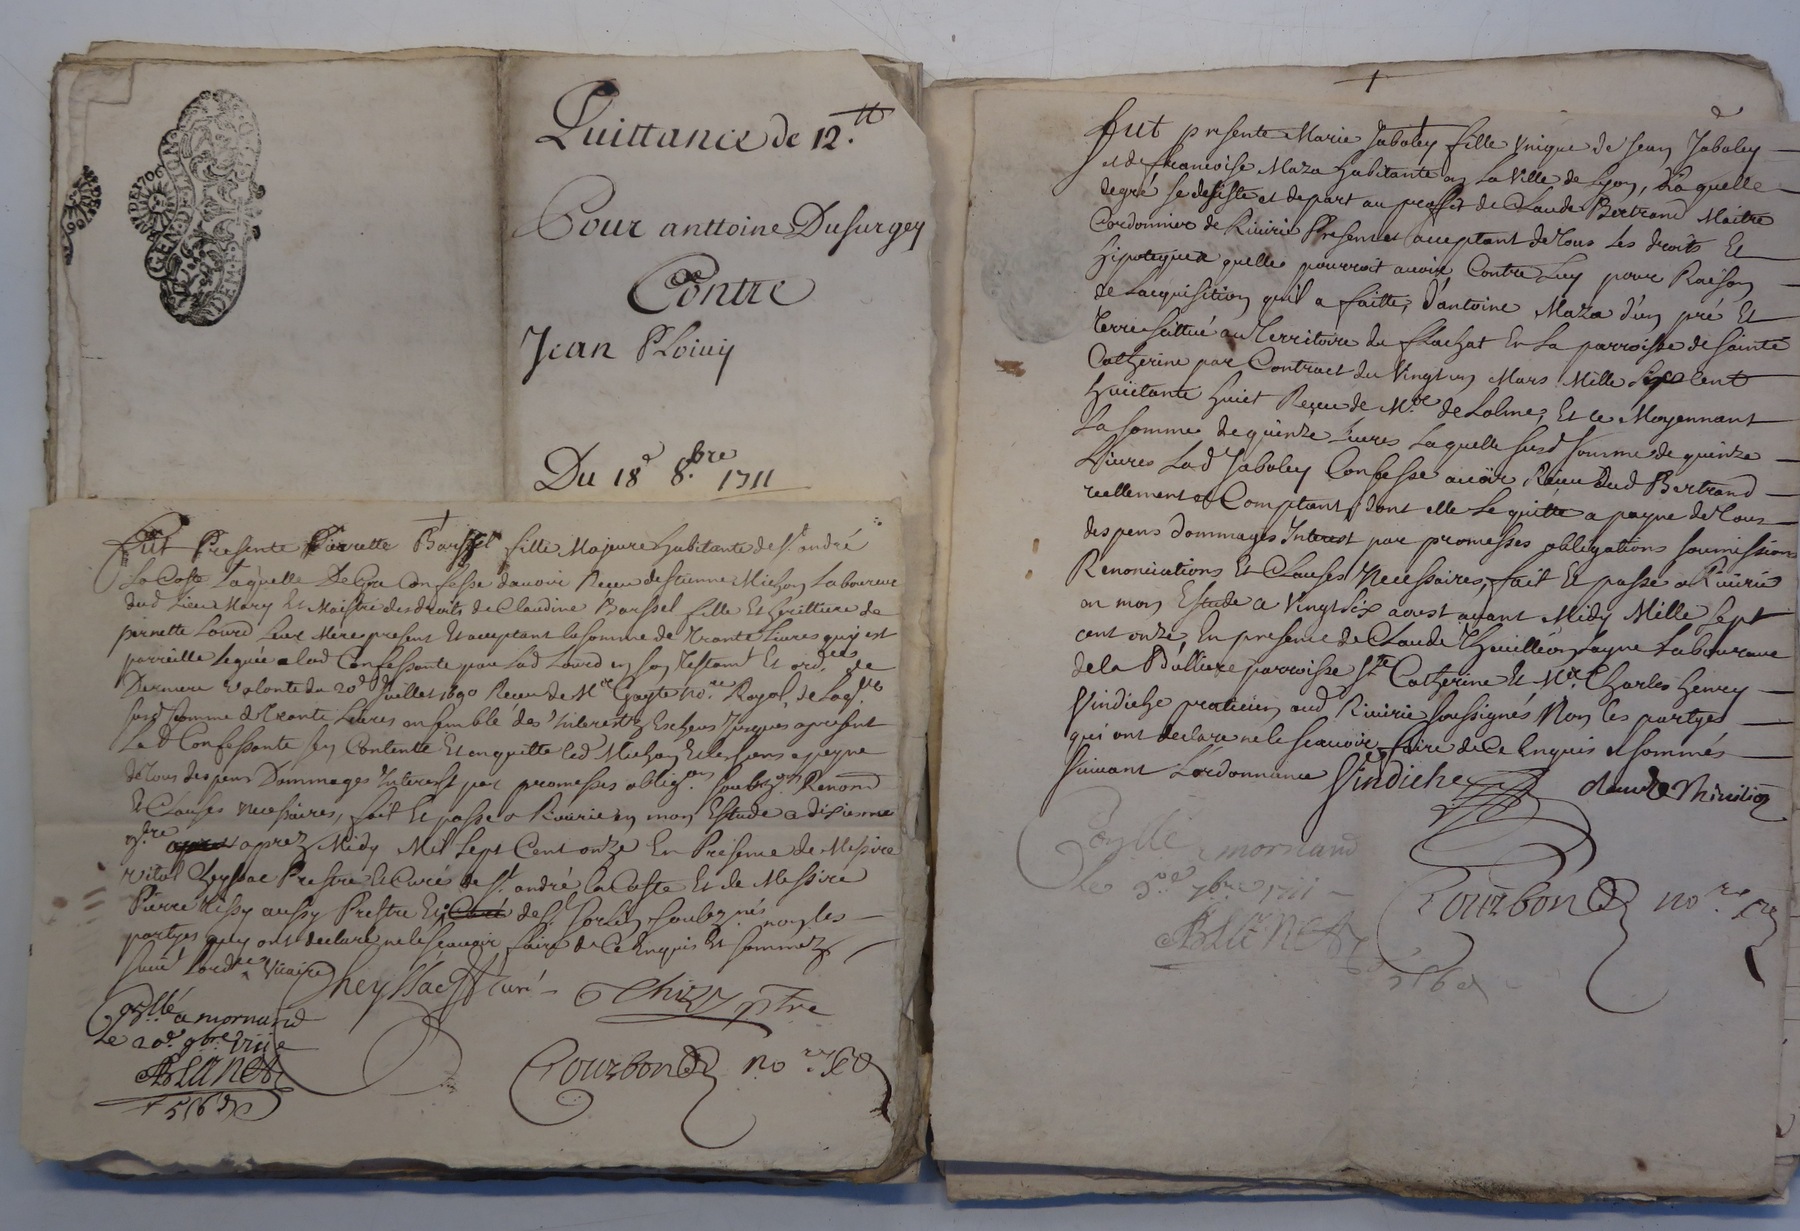 Quittance de 12.tt
Pour anttoine Dusurgey
Contre
Jean Ploivy
Du 18e 8.bre 1711
GEN DE LYON
Fut Presente Pierrette Barssel fille Majeure habitante de St. andré
La Coste Laquelle De Gré Confesse davoir Receu destienne Michon Laboureur
dud Lieu Mary Et Maistre des droits de Claudine Barssel fille Et heritiere de
pernette Lourd Leur Mere present Et acceptant la somme de Trante Livres quy est
pareille Leguée a lad Confessante par Lad Lourd en son Testamt Et ord.
Derniere volonte du 20e Juillet 1690 Receu de Mre Gayte no.re Royal, de Laq.
susd somme de Trante Livres ensemble des Interestz Escheus Jusques apresent
Lad Confessante sen Contente Et en quitte led Michon Et les siens a peyne
de Tous despens Dommages Interest par promesses oblig.ons Renond
Et Clauses necessaires, fait Et passe a Riverie en mon Estude a dixiesme
9.bre aprez Midy Mil Sept Cent onze En Presence de Messire
Vital Cheyssac Prestre Et Curé de St. andré la Coste Et de Messire
Pierre Thissy aussy Prestre Et de St. Sorlin soubzignés non les
partyes quy ont declaré ne le scavoir faire de Ce Enquis Et sommez
suivt Lordce Vicaire
Cheyssac Curé
Thizy ptre
Con.llé a mornand
Le 20e 9bre 1711
Blanet
Courbon no.re
Fut presente Marie Jaboley fille Unique de Jean Jaboley
et de francoise Maza habitante en La Ville de Lyon, Laquelle
degré se desiste et depart au proffit de Claude Bertrand Maitre
Cordonnier de Riverie Present et acceptant de Tous Les droits Et
hipoteques quelle pourroit avoir Contre Luy pour Raison
de Lacquisition quil a faitte, d'antoine Maza d'un pré Et
Terre scittué au Territoire du flachat En La parroisse de Sainte
Catherine par Contract du Vingtun Mars Mille Six Cent
huictante huict Receu de M.re de Lolme, Et ce Moyennant
La somme de quinze Livres Laquelle susd somme de quinze
Livres Lad Jaboley Confesse avoir Receu dud Bertrand
reellement et Comptant, dont elle Le quitte a peyne de Tous
despens dommages Interest par promesses obligations soumissions
Renonciations Et Clauses Necessaires, fait Et passe a Riverie
en mon Estude a Vingt Six aoust avant Midy Mille Sept
cent onze En presence de Claude Thivillion fayne Laboureur
de la Bulliere parroisse Ste Catherine Et Mre Charles henry
Vindiche praticien aud Riverie soussignés Non les partyes
qui ont declare ne le scavoir faire de Ce Enquis et sommés
suivant L'ordonnance
Vindiche
claude thivilion
Con.llé a mornand
Le 7bre 1711
Blanet
Courbon no.re